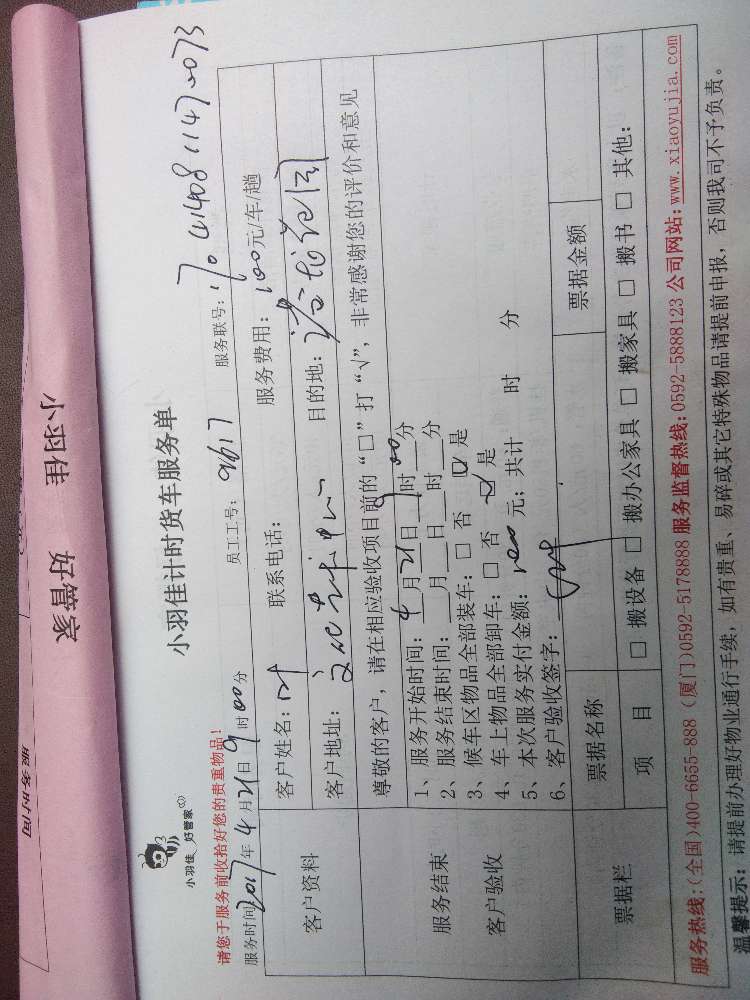 小羽佳 好管家
服务时间
小羽佳 好管家
小羽佳计时货车服务单
请您于服务前收拾好您的贵重物品!
服务时间2017年4月21日9时00分 员工工号:9617 服务联号:
客户资料
客户姓名:叶 联系电话: 服务费用:100元/车/趟
客户地址: 目的地:
服务结束
客户验收
尊敬的客户,请在相应验收项目前的“□”打“√”,非常感谢您的评价和意见
1、服务开始时间:4月21日9时00分
2、服务结束时间:__月__日__时__分
3、候车区物品全部装车:□ 否 ☑ 是
4、车上物品全部卸车:□ 否 ☑ 是
5、本次服务实付金额:元;共计 时 分
6、客户验收签字:
票据栏
票据名称 票据金额
项 目 □ 搬设备 □ 搬办公家具 □ 搬家具 □ 搬书 □ 其他:
服务热线:(全国)400-6655-888 (厦门)0592-5178888 服务监督热线:0592-5888123 公司网站:www.xiaoyujia.com
温馨提示:请提前办理好物业通行手续,如有贵重、易碎或其它特殊物品请提前申报,否则我司不予负责。